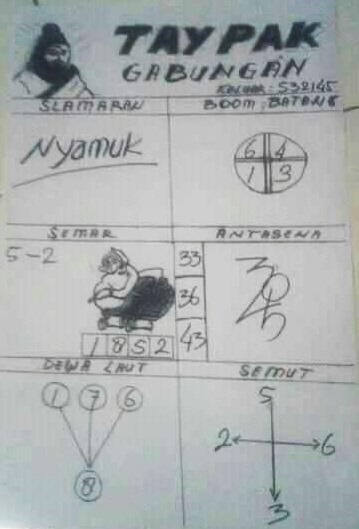 TAY PAK
GABUNGAN
KELUAR: 532145
SLAMARAN
BOOM; BATANG
Nyamuk
6 4
1 3
SEMAR
ANTASENA
5-2
33
36
43
1 8 5 2
DEWA LAUT
SEMUT
1 7 6
8
5
2 6
3